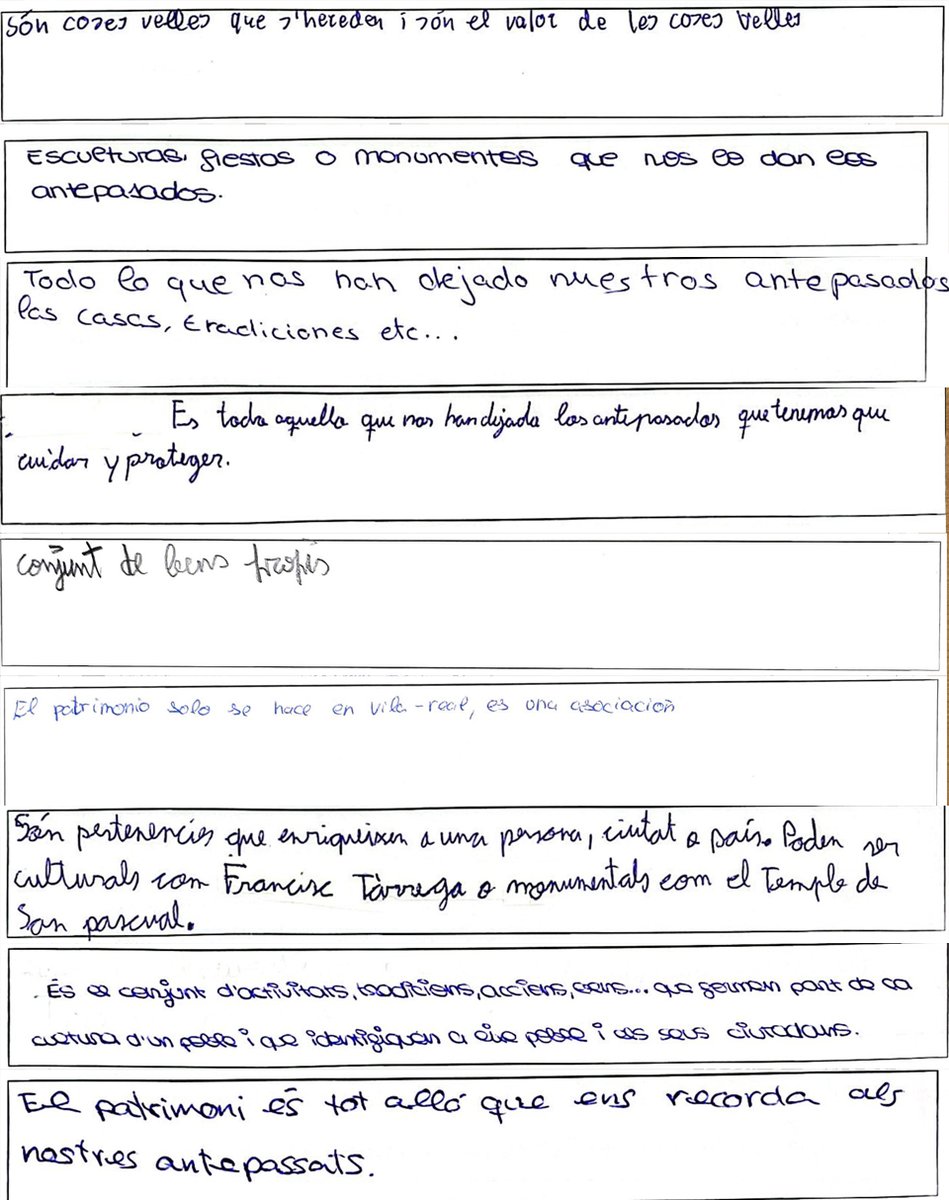 Són coses velles que s'hereden i són el valor de les coses velles
Escueturas, fiestas o monumentos que nos lo dan los
antepasados.
Todo lo que nos han dejado nuestros antepasados
las casas, tradiciones etc...
Es todo aquello que nos han dejado los antepasados que tenemos que
cuidar y proteger.
conjunt de bens propis
El patrimonio solo se hace en vila-real, es una asociación
Són pertenencies que enriqueixen a una persona, ciutat o país. Poden ser
culturals com Francisc Tàrrega o monumentals com el Temple de
San pascual.
És el conjunt d'activitats, tradicions, accions, ... que formen part de la
cultura d'un poble i que identifiquen a eixe poble i als seus ciutadans.
El patrimoni és tot allò que ens recorda als
nostres antepassats.